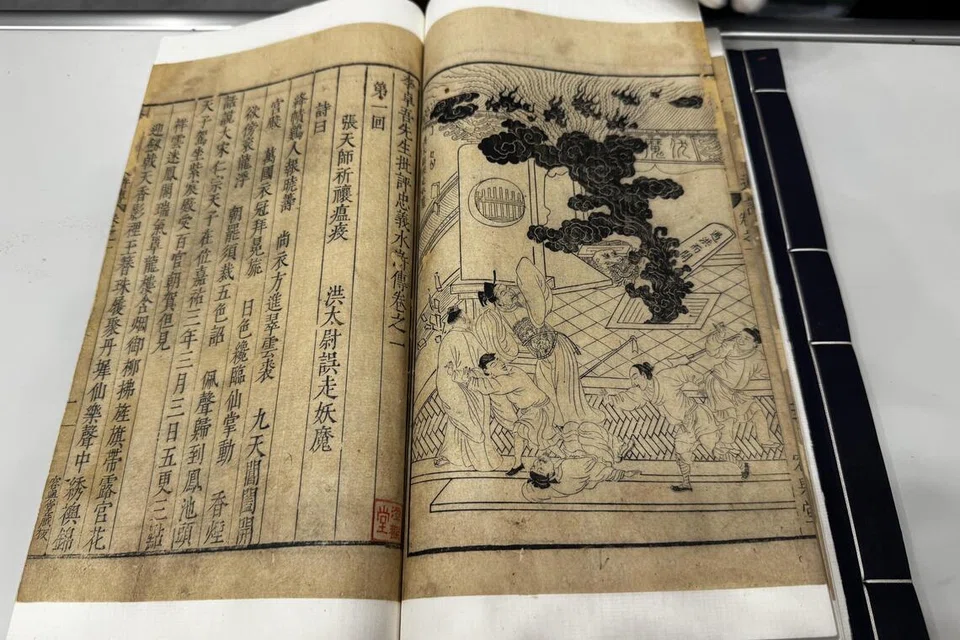 李卓吾先生批評忠義水滸傳卷之一
第一回
張天師祈禳瘟疫 洪太尉誤走妖魔
詩曰
絳幘雞人報曉籌 尚衣方進翠雲裘 九天閶闔開
宮殿 萬國衣冠拜冕旒 日色纔臨仙掌動 香煙
欲傍袞龍浮 朝罷須裁五色詔 佩聲歸到鳳池頭
話說大宋仁宗天子在位嘉祐三年三月三日五更三點
天子駕坐紫宸殿受百官朝賀但見
祥雲迷鳳閣瑞氣罩龍樓含烟御柳拂旌旗帶露宮花
迎劍戟天香影裡玉簪珠履聚丹墀仙樂聲中綉襖錦
遇洪而開
伏魔